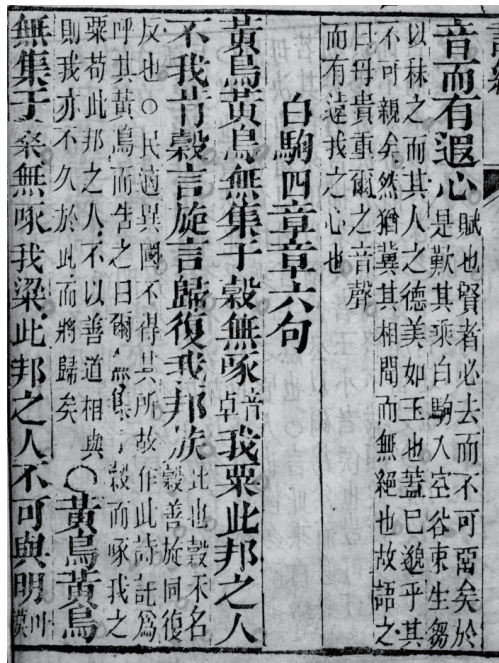 音而有遐心賦也賢者必去而不可畱矣於
是歎其乘白駒入空谷束生芻
以秣之而其人之德美如玉也蓋已邈乎其
不可親矣然猶冀其相聞而無絕也故語之
曰毋貴重爾之音聲
而有遠我之心也
白駒四章章六句
黃鳥黃鳥無集于穀無啄音卓我粟此邦之人
不我肯穀言旋言歸復我邦族比也穀木名
穀善旋回復
反也○民適異國不得其所故作此詩託爲
呼其黃鳥而告之曰爾無集于穀而啄我之
粟苟此邦之人不以善道相與
則我亦不久於此而將歸矣○黃鳥黃鳥
無集于桑無啄我梁此邦之人不可與明叶謨